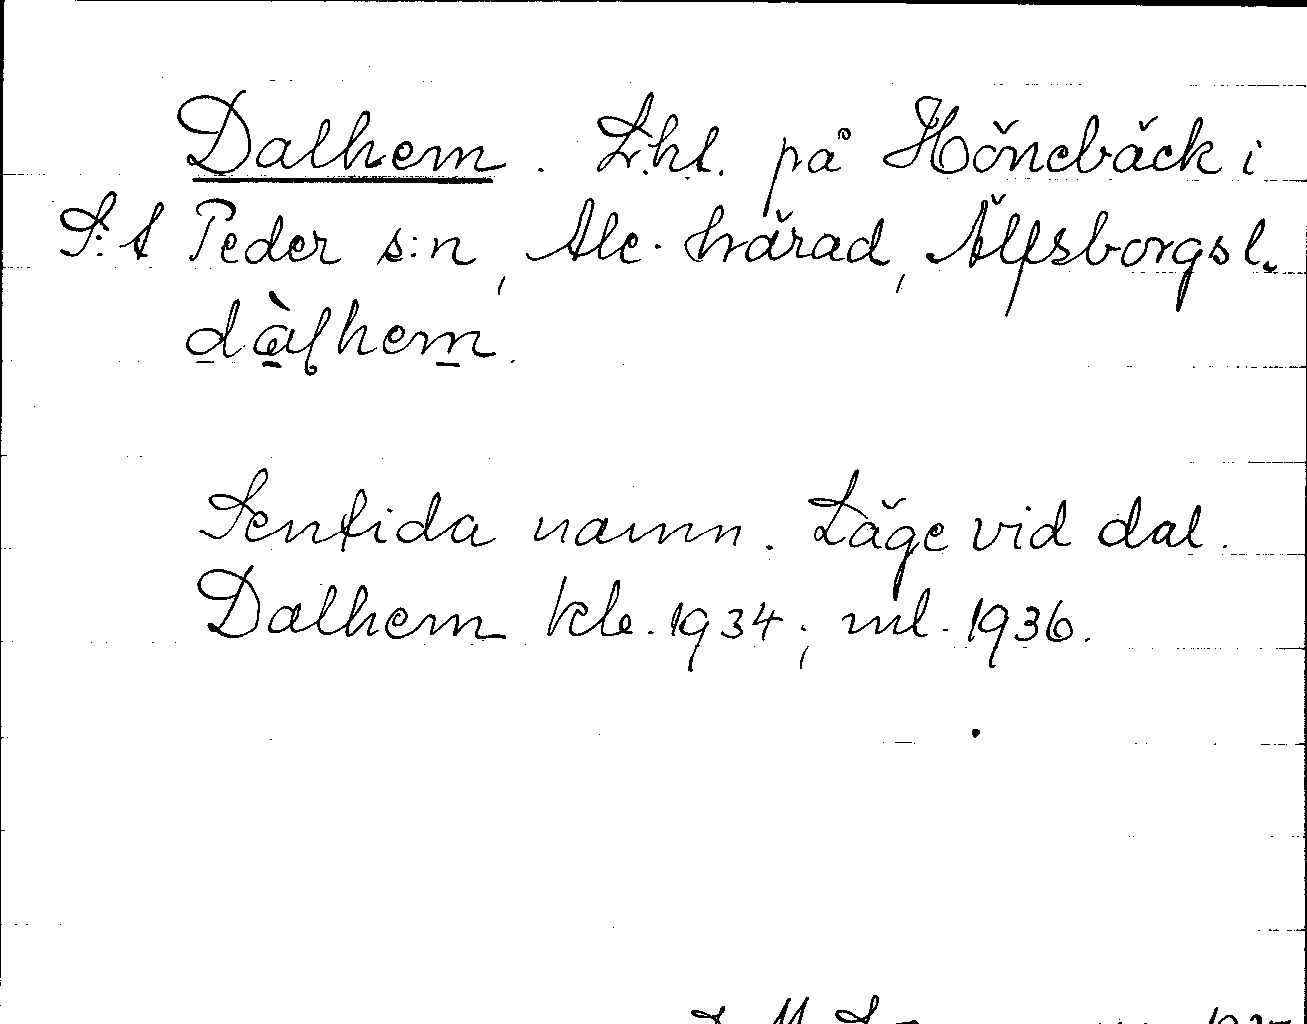 Dalhem. L:ht. på Hönebäck i
S:t Peder s:n, Ale. härad, Älfsborgs l.
dàlhem.
Sentida namn. Läge vid dal.
Dalhem kb. 1934; ml. 1936.